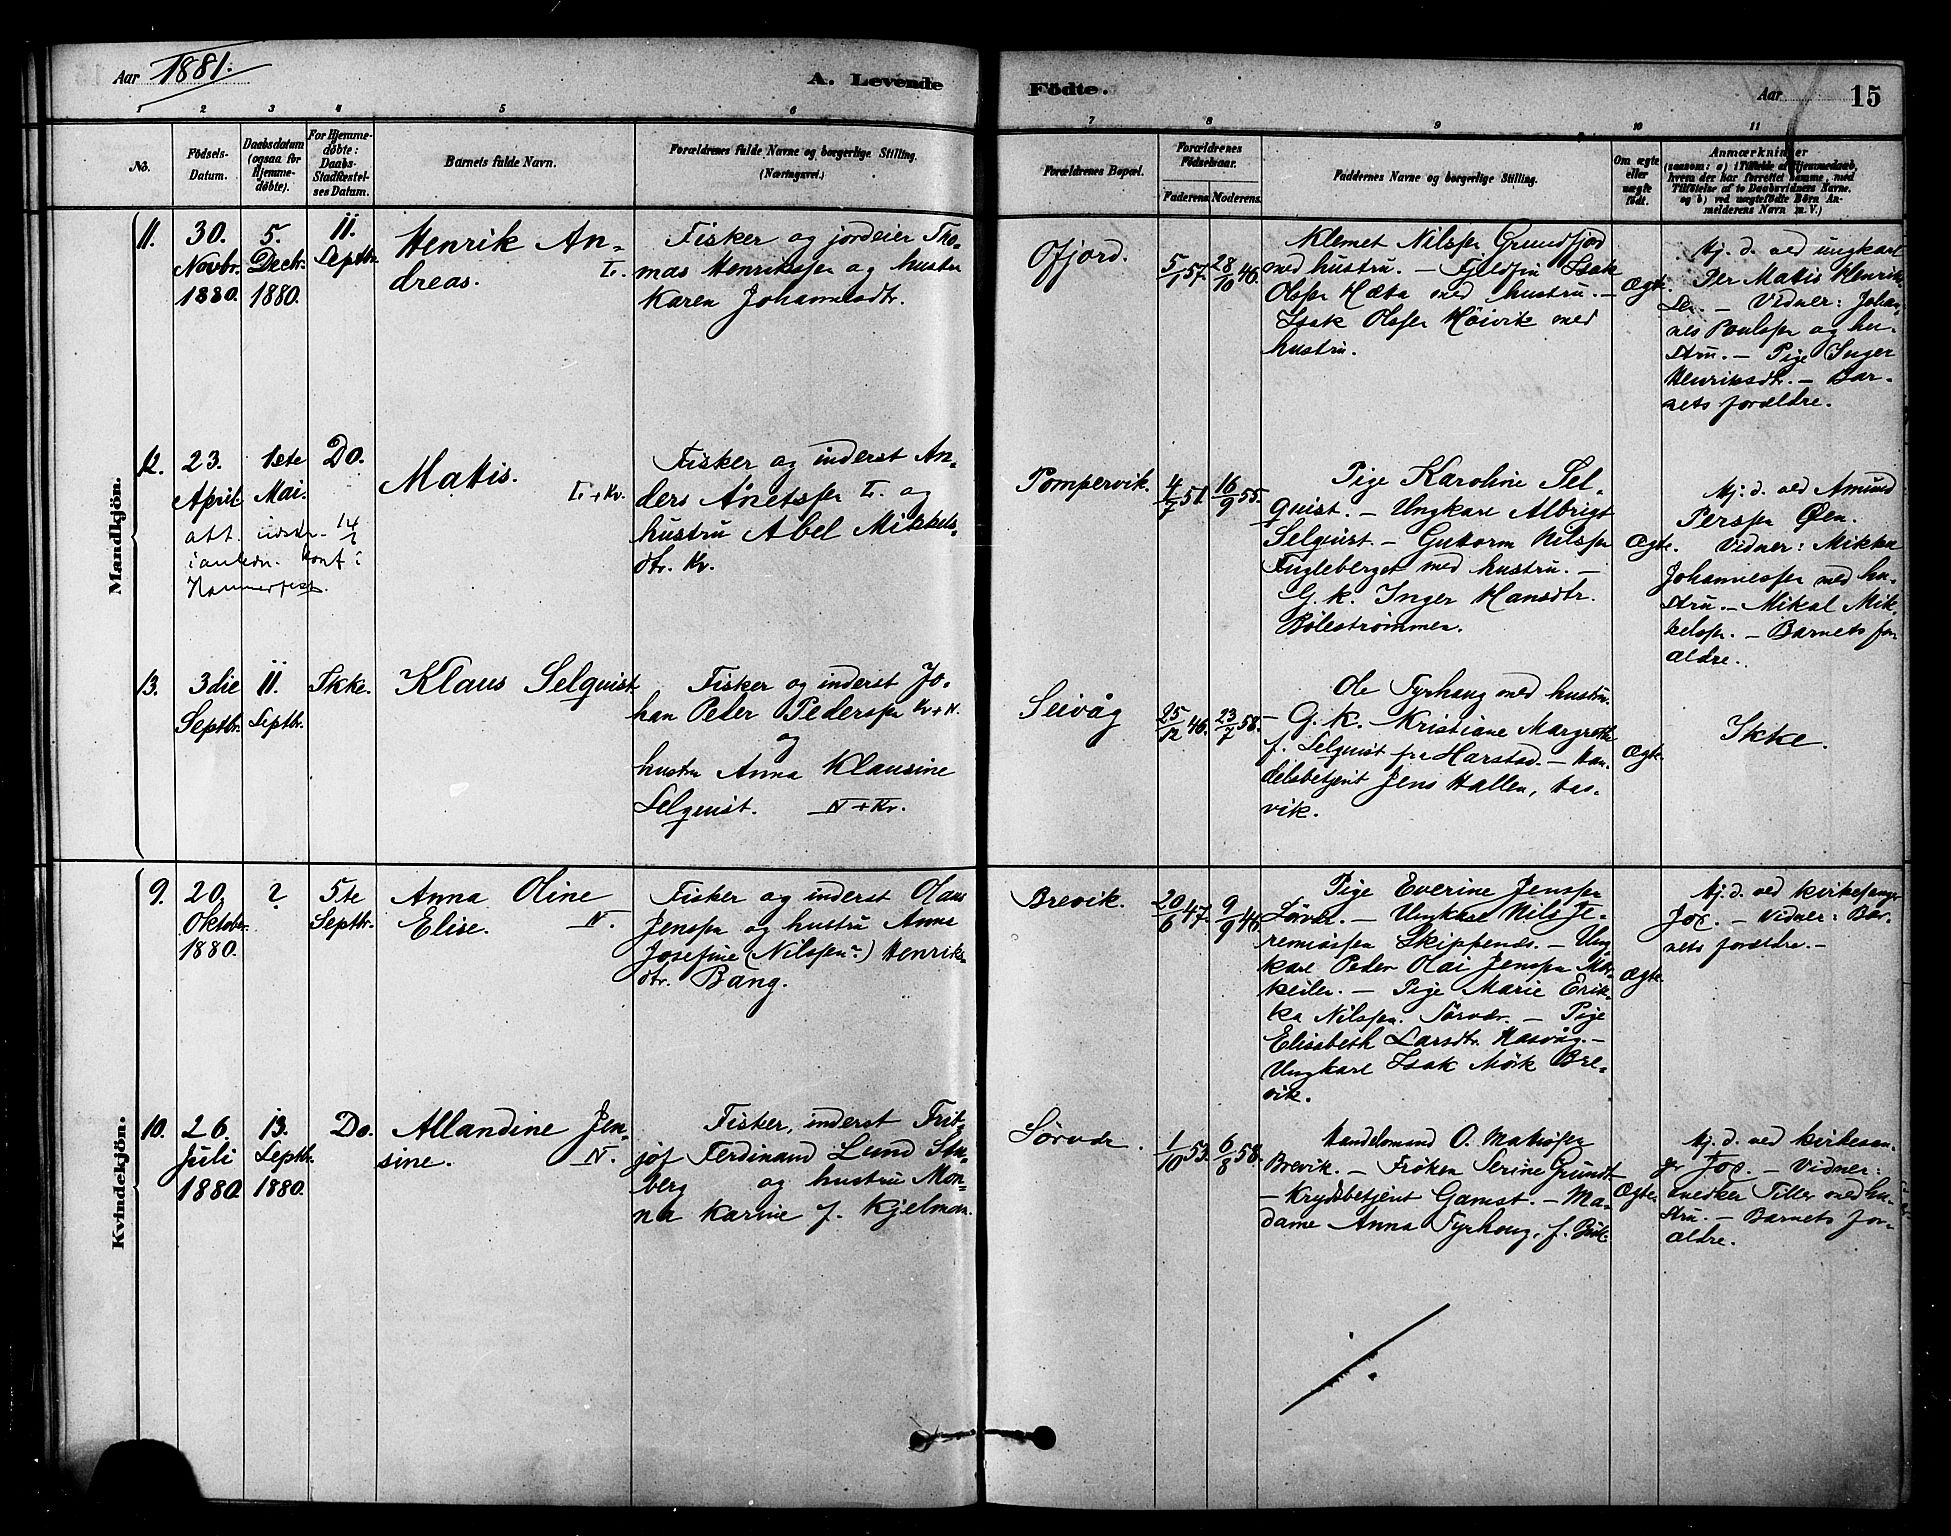 Aar 1881.
A. Levende
Födte.
Aar
15
1 2 3 4 5 6 7 8 9 10 11
No.
Födsels-
Datum.
Daabsdatum
(ogsaa for
Hjemme-
døbte).
For Hjemme-
døbte:
Daabs-
Stadfæstel-
ses Datum.
Barnets fulde Navn.
Forældrenes fulde Navne og borgerlige Stilling.
(Næringsvei.)
Forældrenes Bopæl.
Forældrenes
Födselsaar.
Faderens. Moderens.
Faddernes Navne og borgerlige Stilling.
Om ægte
eller
uægte
födt.
Anmærkninger
(saasom: a) i Tilfælde af Hjemmedaab,
hvem der har forrettet samme, med
Tilföielse af to Daabsvidners Navne,
og b) ved uægtefödte Börn An-
melderens Navn m. V.)
Mandkjön.
11.
30.
Novbr.
1880.
5.
Decbr.
1880.
11.
Septbr.
Henrik An-
dreas.
Fisker og jordeier Tho-
mas Henrikssen og hustru
Karen Johannesdtr.
Ofjord.
5/7 57.
28/10 40.
Klemet Nilssen Grundfjod
med hustru. — Fjeldfin Isak
Olssen Hæta med hustru. —
Isak Olssen Höivik med
hustru.
Ægte.
Hj. d. ved ungkarl
Per Matis Henrik-
sen. — Vidner: Johan-
nes Poulssen og hu-
stru. — Pige Inger
Henriksdtr. — Bar-
nets forældre.
12.
23.
April.
1ste
Mai.
Do.
att. udst. 14/2
i anledn. konf. i
Hammerfest.
Matis.
L. + Kv.
Fisker og inderst An-
ders Ånetssen L. og
hustru Abel Mikkels-
dtr. Kv.
Pompervik.
4/7 51.
16/9 55.
Pige Karoline Sel-
quist. — Ungkarl Albrigt
Selquist. — Guttorm Nilssen
Fugleberget med hustru. —
G. k. Inger Hansdtr.
Bölestrømmen.
Ægte.
Hj. d. ved Amund
Perssen Øen.
Vidner: Mikkel
Johannessen med hu-
stru. — Mikal Mik-
kelssen. — Barnets for-
ældre.
13.
3die
Septbr.
11.
Septbr.
Ikke.
Klaus Selquist
Fisker og inderst Jo-
han Peder Pederssen Kv + N.
og
hustru Anna Klausine
Selquist. N + Kv.
Seivåg
25/12 46.
23/7 58.
Ole Fyrhaug med hustru.
— G. k. Kristiane Margrethe
f. Selquist fra Harstad. — Han-
delsbetjent Jens Hallen, Has-
vik.
Ægte.
Ikke.
Kvindekjön.
9.
20.
Oktober
1880.
?
5te
Septbr.
Anna Oline
Elise.
N.
Fisker og inderst Olaus
Jenssen og hustru Anna
Josefine (Nilssen?) Henriks-
dtr. Bang.
Brevik.
20/6 47.
9/9 46.
Pige Everine Jenssen
Sørvær. — Ungkarl Nils Je-
remiassen Skippernes. — Ung
karl Peder Olai Jenssen
— Pige Marie Erik-
ka Nilssen. Sørvær. — Pige
Elisabeth Larsdtr. Hasvåg. —
Ungkarl Isak Mörk Bre-
vik.
Ægte.
Hj. d. ved kirkesanger
Jox. — Vidner: Bar-
nets forældre. —
10.
26.
Juli
1880.
13.
Septbr.
1880.
Do.
Allandine Jen-
sine.
N.
Fisker, inderst Frit-
jof Ferdinand Lund Sten-
berg og hustru Mon-
na Karine f. Kjelman.
Sørvær
1/10 53.
6/8 58.
Handelsmand O. Mathisen
Brevik. — Frøken Serine Grundt
— Krydsbetjent Gamst. — Ma-
dame Anna Fyrhaug, f. Bul.
Ægte.
Hj. d. ved kirkesan-
ger Jox. — Vidner:
snedker Tiller med hu-
stru. — Barnets for-
ældre.